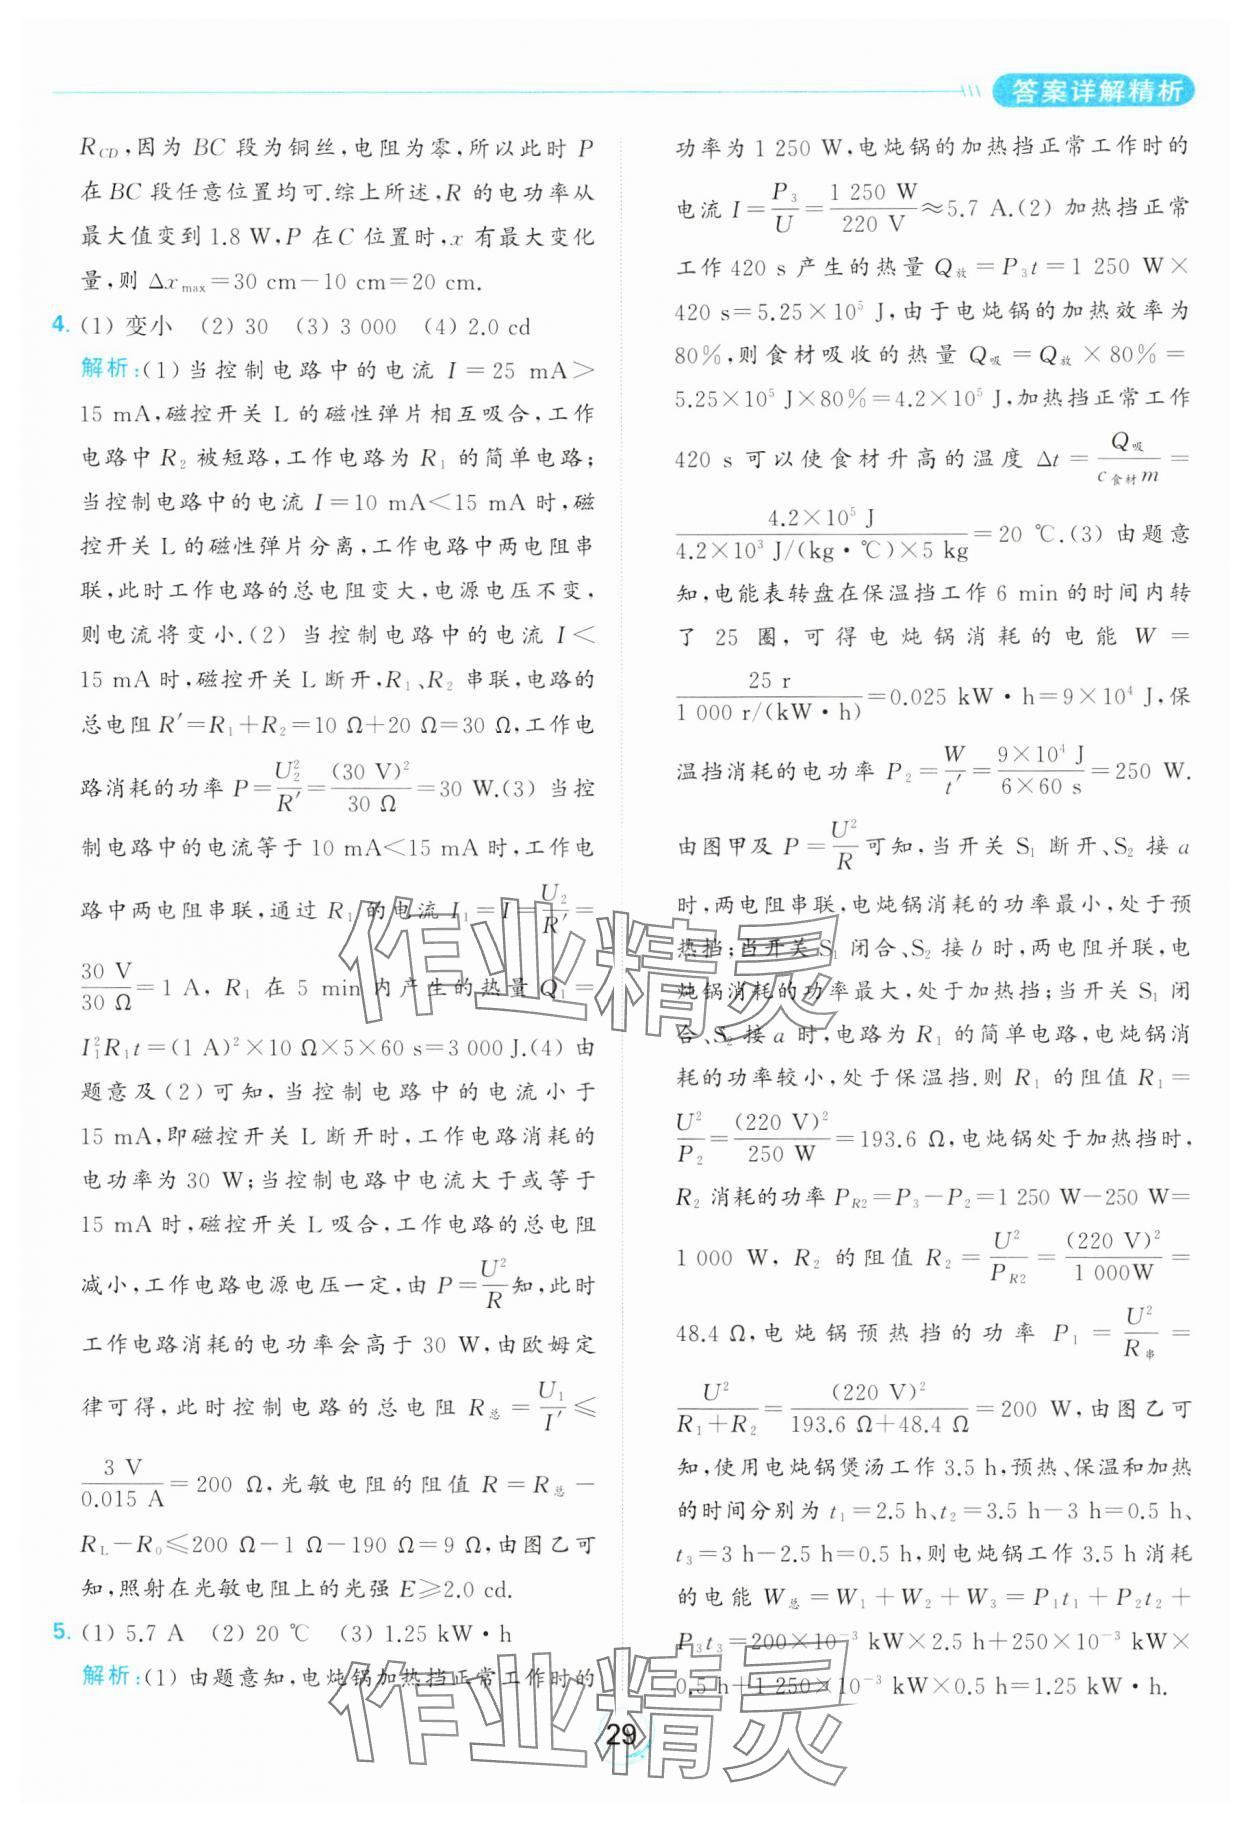 答案详解精析
R_CD,因为 BC 段为铜丝,电阻为零,所以此时 P
在 BC 段任意位置均可.综上所述,R 的电功率从
最大值变到 1.8 W,P 在 C 位置时,x 有最大变化
量,则 Δx_max=30 cm-10 cm=20 cm.
4. (1) 变小 (2) 30 (3) 3 000 (4) 2.0 cd
解析:(1) 当控制电路中的电流 I=25 mA>
15 mA,磁控开关 L 的磁性弹片相互吸合,工作
电路中 R₂ 被短路,工作电路为 R₁ 的简单电路;
当控制电路中的电流 I=10 mA<15 mA 时,磁
控开关 L 的磁性弹片分离,工作电路中两电阻串
联,此时工作电路的总电阻变大,电源电压不变,
则电流将变小.(2) 当控制电路中的电流 I<
15 mA 时,磁控开关 L 断开,R₁、R₂ 串联,电路的
总电阻 R′=R₁+R₂=10 Ω+20 Ω=30 Ω,工作电
路消耗的功率 P=U₂²/R′=(30 V)²/30 Ω=30 W.(3) 当控
制电路中的电流等于 10 mA<15 mA 时,工作电
路中两电阻串联,通过 R₁ 的电流 I₁=I=U₂/R′=
30 V/30 Ω=1 A, R₁ 在 5 min 内产生的热量 Q₁=
I₁²R₁t=(1 A)²×10 Ω×5×60 s=3 000 J.(4) 由
题意及(2) 可知,当控制电路中的电流小于
15 mA,即磁控开关 L 断开时,工作电路消耗的
电功率为 30 W;当控制电路中电流大于或等于
15 mA 时,磁控开关 L 吸合,工作电路的总电阻
减小,工作电路电源电压一定,由 P=U²/R知,此时
工作电路消耗的电功率会高于 30 W,由欧姆定
律可得,此时控制电路的总电阻 R总=U₁/I′≤
3 V/0.015 A=200 Ω,光敏电阻的阻值 R=R总-
R_L-R₀≤200 Ω-1 Ω-190 Ω=9 Ω,由图乙可
知,照射在光敏电阻上的光强 E≥2.0 cd.
5. (1) 5.7 A (2) 20 ℃ (3) 1.25 kW·h
解析:(1) 由题意知,电炖锅加热挡正常工作时的
功率为 1 250 W,电炖锅的加热挡正常工作时的
电流 I=P₃/U=1 250 W/220 V≈5.7 A.(2) 加热挡正常
工作 420 s 产生的热量 Q放=P₃t=1 250 W×
420 s=5.25×10⁵ J,由于电炖锅的加热效率为
80%,则食材吸收的热量 Q吸=Q放×80%=
5.25×10⁵ J×80%=4.2×10⁵ J,加热挡正常工作
420 s 可以使食材升高的温度 Δt=Q吸/c食材m=
4.2×10⁵ J/4.2×10³ J/(kg·℃)×5 kg=20 ℃.(3) 由题意
知,电能表转盘在保温挡工作 6 min 的时间内转
了 25 圈,可得电炖锅消耗的电能 W=
25 r/1 000 r/(kW·h)=0.025 kW·h=9×10⁴ J,保
温挡消耗的电功率 P₂=W/t′=9×10⁴ J/6×60 s=250 W.
由图甲及 P=U²/R可知,当开关 S₁ 断开、S₂ 接 a
时,两电阻串联,电炖锅消耗的功率最小,处于预
热挡;当开关 S₁ 闭合、S₂ 接 b 时,两电阻并联,电
炖锅消耗的功率最大,处于加热挡;当开关 S₁ 闭
合、S₂ 接 a 时,电路为 R₁ 的简单电路,电炖锅消
耗的功率较小,处于保温挡.则 R₁ 的阻值 R₁=
U²/P₂=(220 V)²/250 W=193.6 Ω,电炖锅处于加热挡时,
R₂ 消耗的功率 P_R2=P₃-P₂=1 250 W-250 W=
1 000 W, R₂ 的阻值 R₂=U²/P_R2=(220 V)²/1 000W=
48.4 Ω,电炖锅预热挡的功率 P₁=U²/R串=
U²/R₁+R₂=(220 V)²/193.6 Ω+48.4 Ω=200 W,由图乙可
知,使用电炖锅煲汤工作 3.5 h,预热、保温和加热
的时间分别为 t₁=2.5 h、t₂=3.5 h-3 h=0.5 h、
t₃=3 h-2.5 h=0.5 h,则电炖锅工作 3.5 h 消耗
的电能 W总=W₁+W₂+W₃=P₁t₁+P₂t₂+
P₃t₃=200×10⁻³ kW×2.5 h+250×10⁻³ kW×
0.5 h+1 250×10⁻³ kW×0.5 h=1.25 kW·h.
作业精灵
作业精灵
29